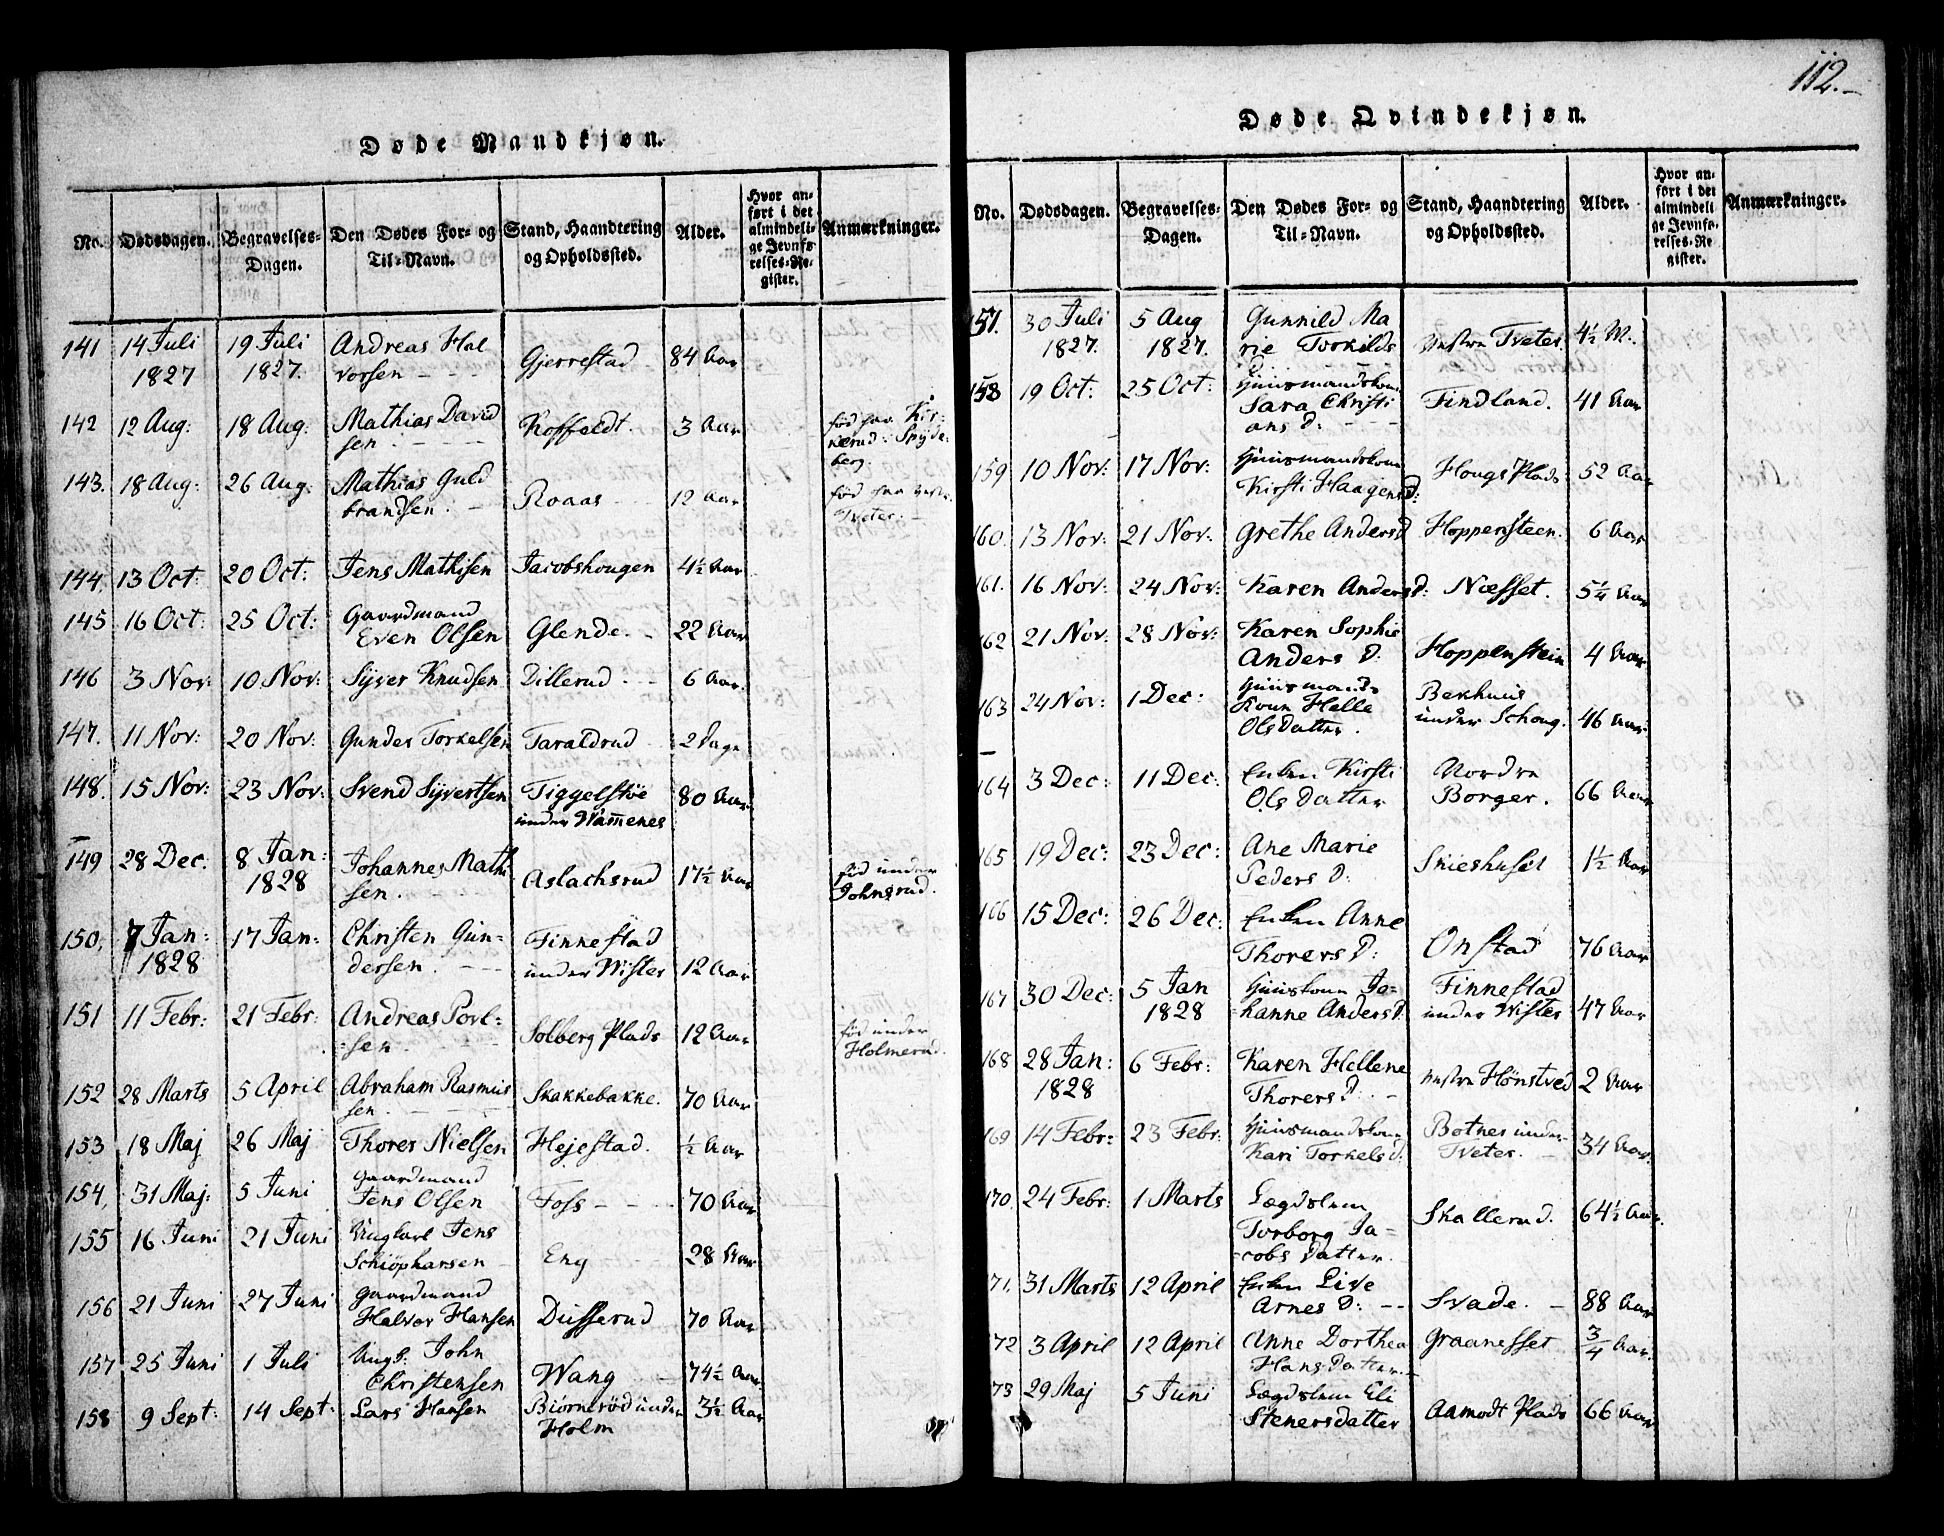 112.
Døde Mandkjøn.
No. Dødsdagen. Begravelses-Dagen. Den Dødes For- og Til-Navn. Stand, Haandtering og Opholdssted. Alder. Hvor anført i det almindelige Jevnførelses-Register. Anmærkninger.
141 14 Juli 1827 19 Juli 1827. Andreas Halvorsen - - - Gjerrestad 84 Aar
142 12 Aug: 18 Aug: Mathias Davidsen Koffeldt 3 Aar
143. 18 Aug: 26 Aug: Mathias Guldbrandsen. - Roaas 12 Aar Tveter.
144. 13 Oct: 20 Oct: Jens Mathisen Jacobshougen 4½ Aar
145 16 Oct: 25 Oct: Gaardmand Even Olsen Glende. - 22 Aar
146 3 Nov: 10 Nov: Syver Knudsen Dillerud. - - 6 Aar.
147. 11 Nov: 20 Nov: Gunder Torkelsen Taraldrud 2 Dage
148. 15 Nov: 23 Nov: Svend Syvertsen Tiggelstøe under Wamenes 80 Aar
149 28 Dec: 8 Jan: 1828 Johannes Mathisen. Aslachsrud 17½ Aar fød under Johnsrud.
150. 7 Jan: 1828 17 Jan: Christen Gundersen. - - Finnestad under Wister 12 Aar
151 11 Febr: 21 Febr: Andreas Povl=sen. Solberg Plads 12 Aar fød under Holmerud.
152 28 Marts 5 April Abraham Rasmussen. Skakkebakke. 70 Aar
153 18 Maj 26 Maj Thorer Nielsen Hejestad. ½ Aar
154. 31 Maj: 5 Juni Gaardmand Jens Olsen Foss - - - 70 Aar
155 16 Juni 21 Juni Ungkarl Jens Schiøpharsen Eng 28 Aar
156 21 Juni 27 Juni Gaardmand Halvor Hansen Dusserud 70 Aar
157 25 Juni 1 Juli Ungk: John Christensen Wang 74½ Aar.
158 9 Sept: 14 Sept: Lars Hansen Biørnerød under Holm 3½ Aar
Døde Qvindekjøn.
No. Dødsdagen. Begravelses-Dagen. Den Dødes For- og Til-Navn. Stand, Haandtering og Opholdssted. Alder. Hvor anført i det almindelige Jevnførelses-Register. Anmærkninger.
157. 30 Juli 1827. 5 Aug 1827. Gunnild Marie Torkilds D. Vestre Tveter. 4½ M:
158 19 Oct: 25 Oct: Huusmandskone Sara Christians D: - - - Findland. 41 Aar
159 10 Nov: 17 Nov: Huusmandskone Kirsti Haagens D: Hougs Plads 52 Aar
160. 13 Nov: 21 Nov: Grethe Anders D Hoppensteen. 6 Aar
161. 16 Nov: 24 Nov: Karen Anders D: Næsset. 5¼ Aar
162 21 Nov: 28 Nov: Karen Sophie Anders D: Hoppenstein 4 Aar
163 24 Nov: 1 Dec: Huusmands Kone Helle Olsdatter. Bekhuus under Schoug. 46 Aar
164 3 Dec: 11 Dec: Enken Kirsti Olsdatter Nordre Borger. 66 Aar
165 19 Dec: 23 Dec: Ane Marie Peders D: 1½ Aar
166 15 Dec: 26 Dec: Enken Anne Thorers D: Onstad 76 Aar
167 30 Dec: 5 Jan 1828 Huuskone Jo=hanne Anders D: Finnestad under Wister 47 Aar
168 28 Jan: 1828 6 Febr: Karen Hellene Thorers D: - Vestre Hønstved 2 Aar
169 14 Febr: 23 Febr: Huusmandskone Kari Torkels D: Botner under Tveter. 34 Aar
170. 24 Febr: 1 Marts Lægdslem Torborg Ja=cobs Datter. Skallerud. 64½ Aar.
71. 31 Marts 12 April Enken Live Arnes D: - - Svade. - 88 Aar
72 3 April 12 April Anne Dorthea Hans Datter. Graanesset ¾ Aar.
73 29 Maj 5 Juni Lægdslem Eli Stenersdatter Aamodt Plads 66 Aar